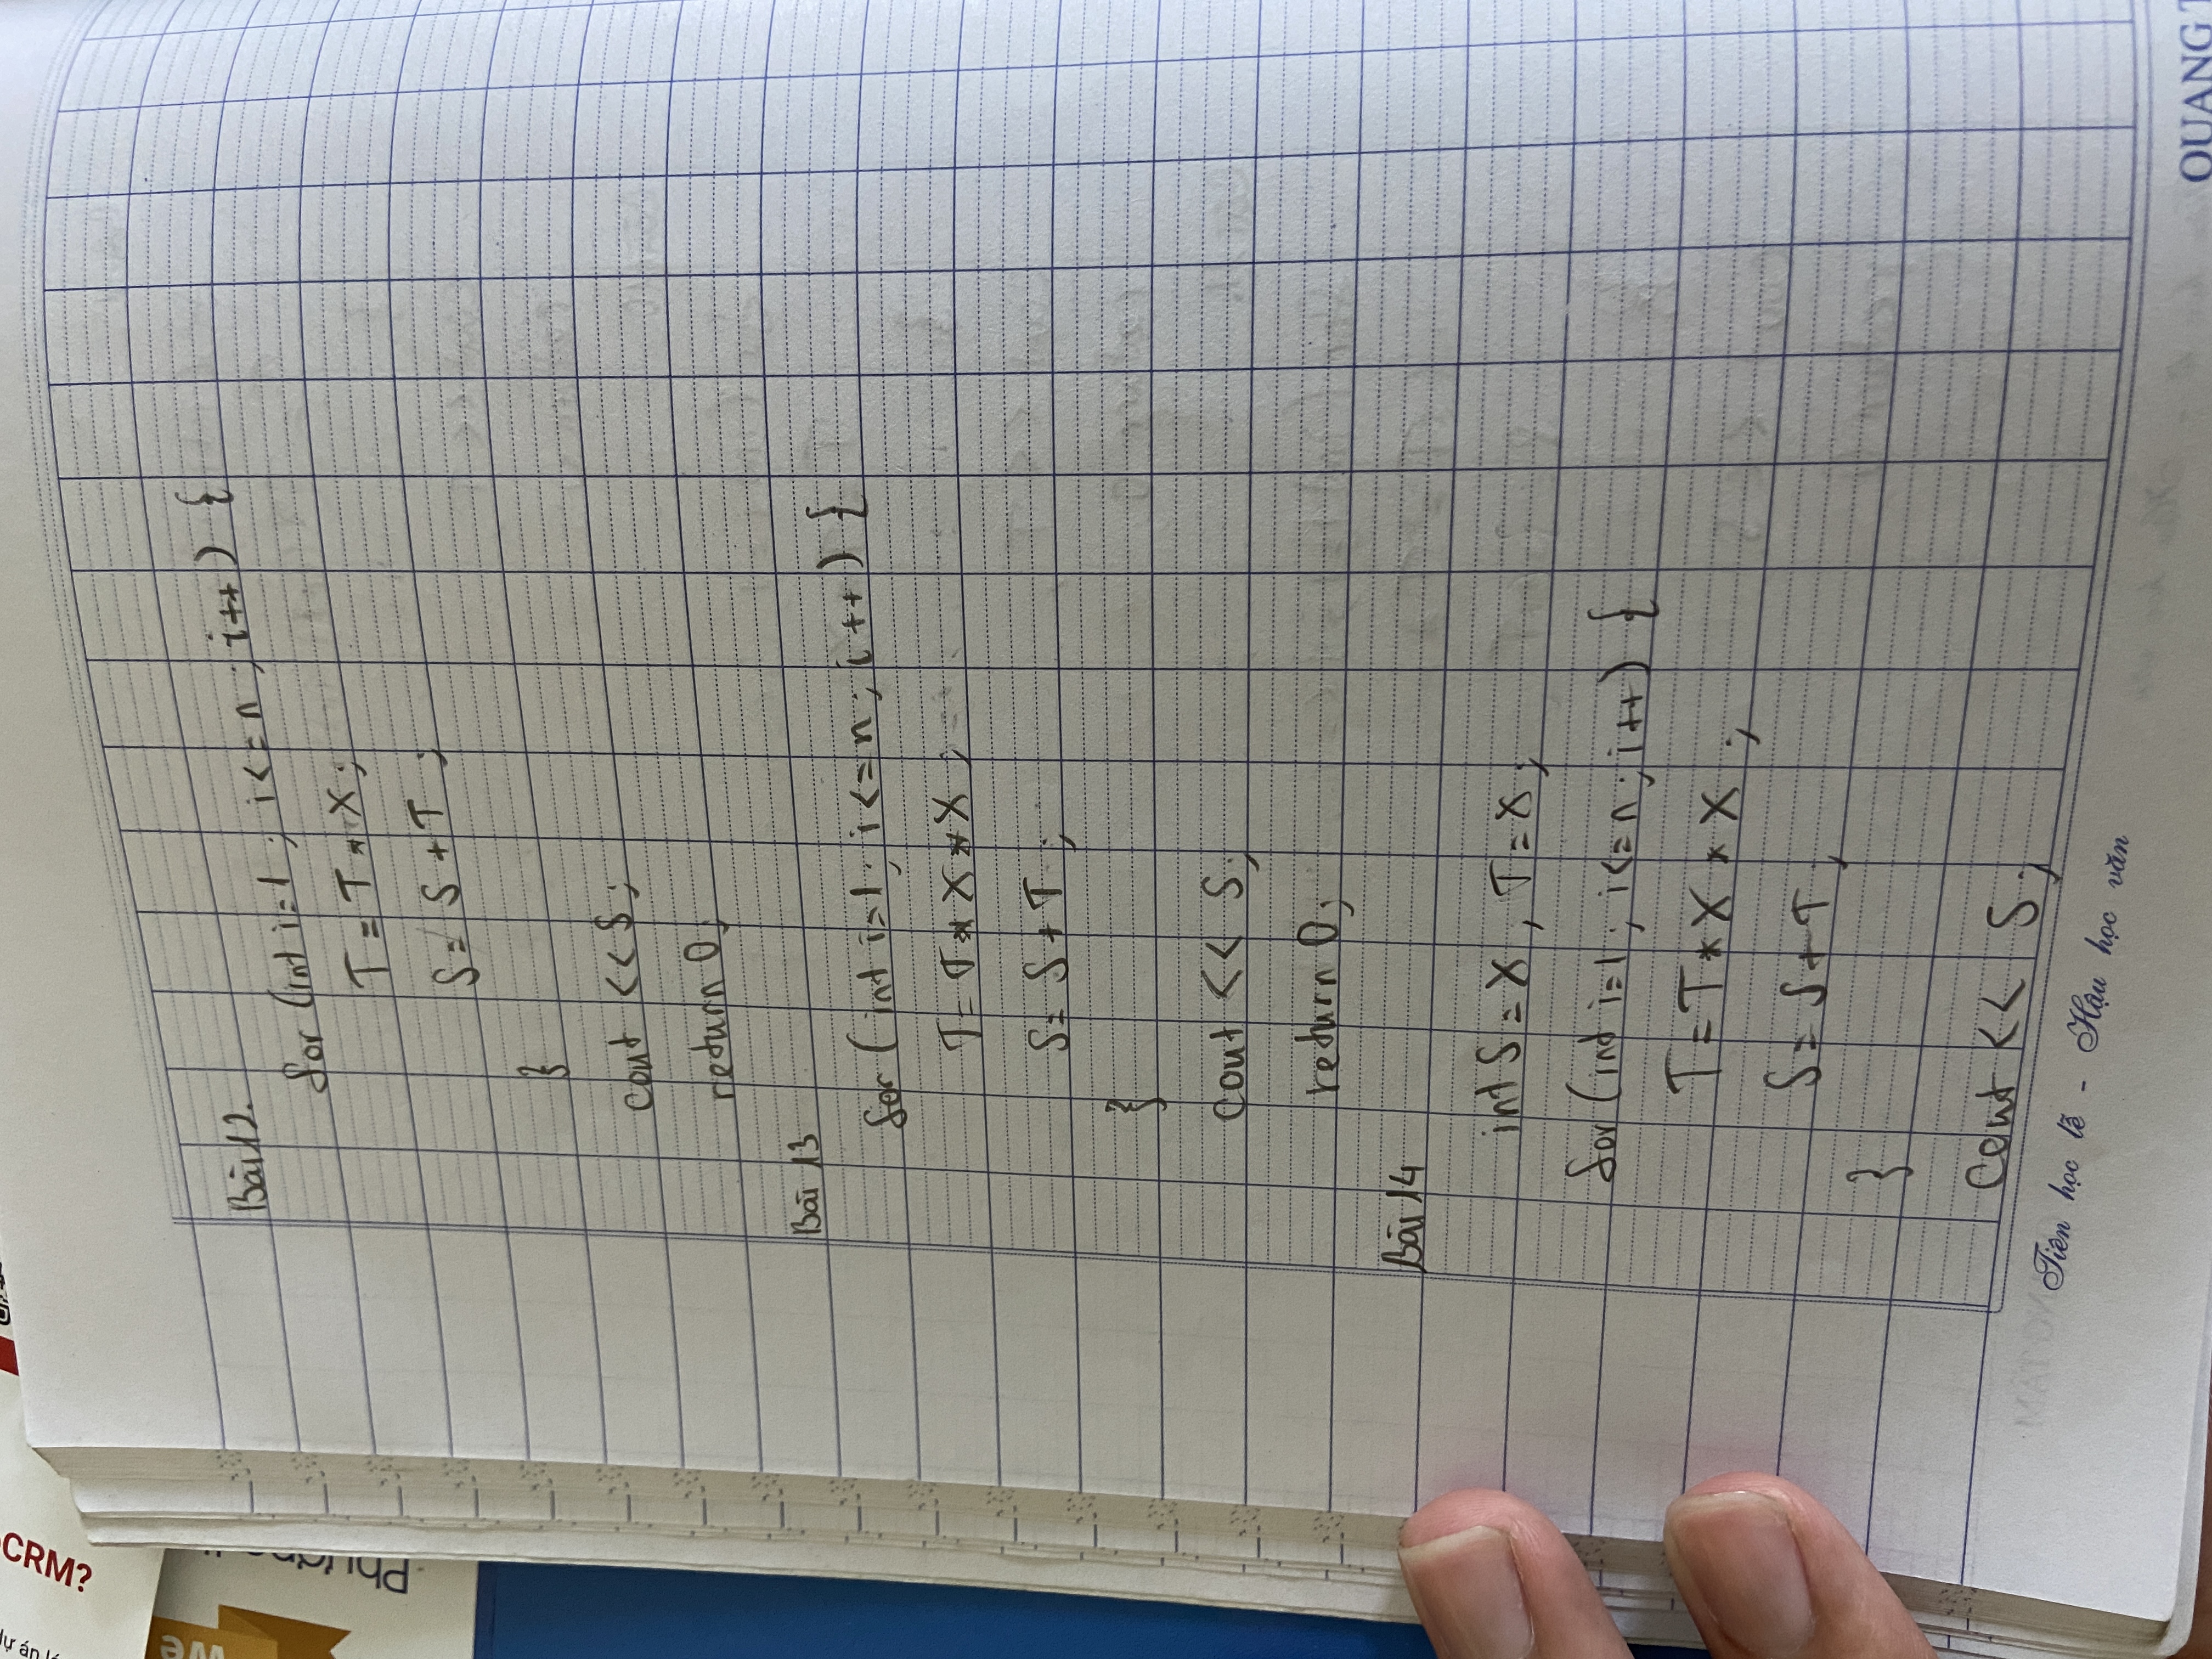 Bài 12.
for (int i=1; i<=n; i++) {
T = T * X;
S = S + T;
}
cout << S;
return 0;
Bài 13
for (int i=1; i<=n; i++) {
T = T * X * X;
S = S + T;
}
Cout << S;
return 0;
Bài 14
int S = X, T = X;
for (int i=1; i<=n; i++) {
T = T * X * X;
S = S + T;
}
Cout << S;
Tiên học lễ - Hậu học văn
QUANG
We
CRM?